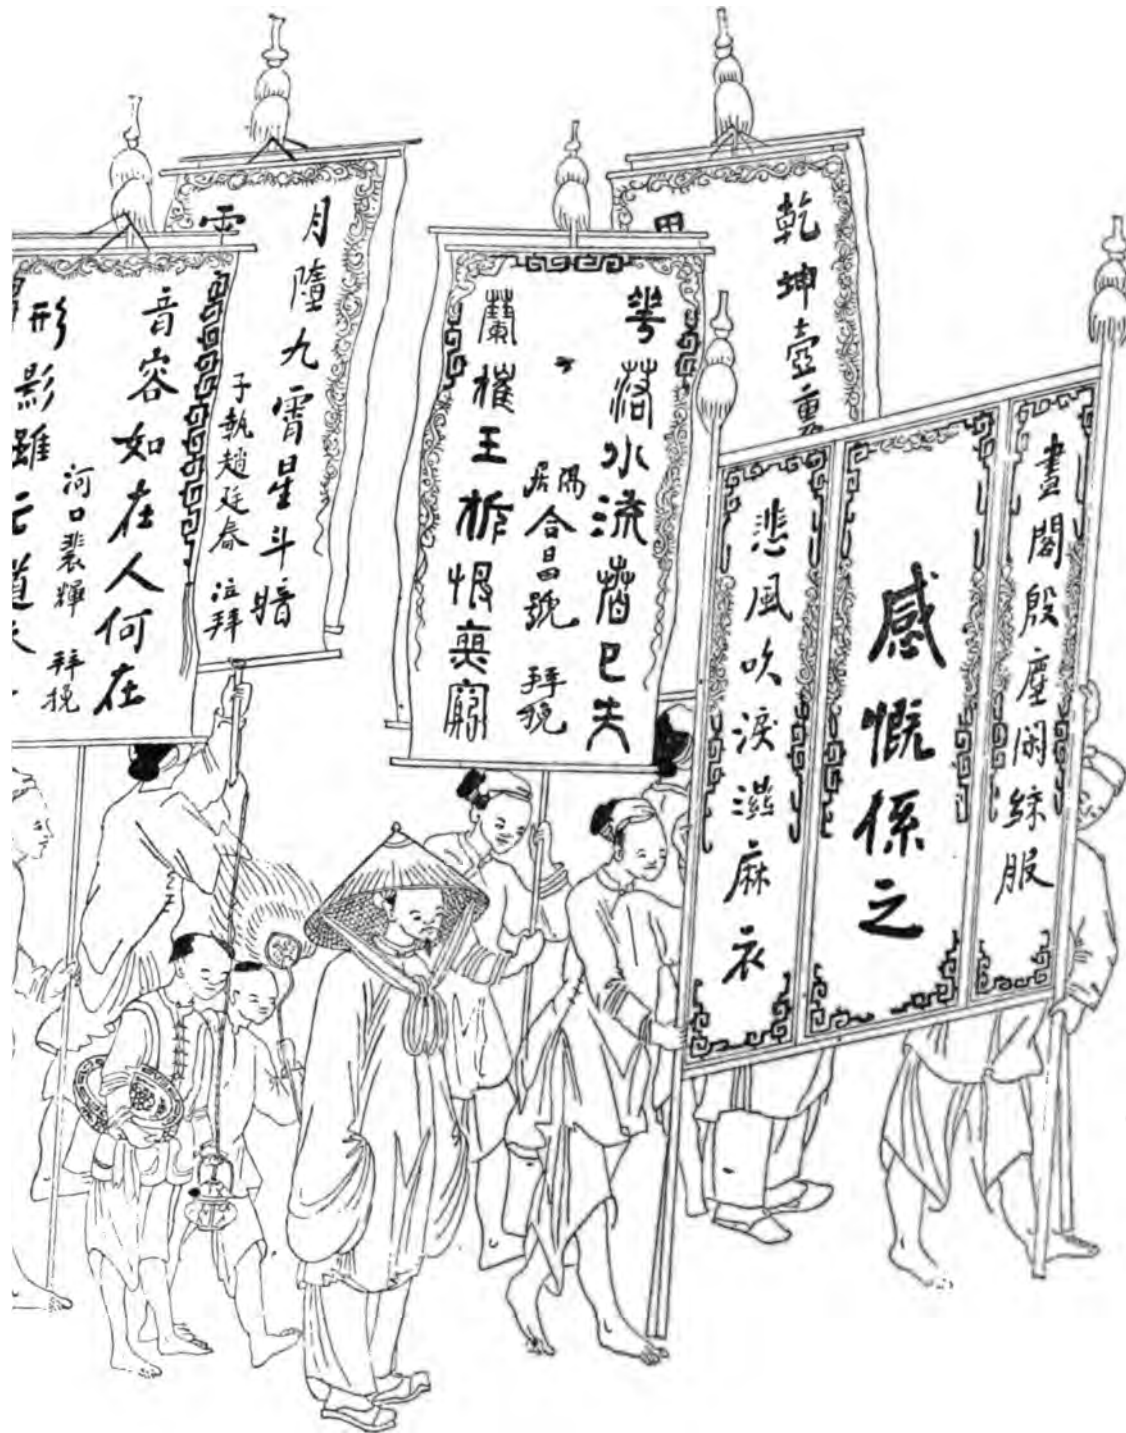 畫閣殷塵閑綵服
感慨係之
悲風吹淚濕麻衣
乾坤壺裏
水流
巳失
隅居合昌號 拜挽
蘭摧玉折恨
月墮九霄星斗暗
子執趙廷春 泣拜
音容如在人何在
河口裴輝 拜挽
形影雖亡道